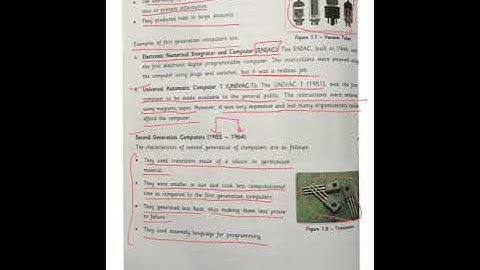 how to process information.
They produced heat in large amounts.
Figure 1.7 – Vacuum Tubes
Examples of first generation computers are:
Electronic Numerical Integrator and Computer (ENIAC): The ENIAC, built in 1946, was
the first electronic digital programmable computer. The instructions were entered into
the computer using plugs and switches, but it was a tedious job.
Universal Automatic Computer 1 (UNIVAC-1): The UNIVAC 1 (1951), was the first
computer to be made available to the general public. The instructions were entered
using magnetic tapes. However, it was very expensive and not many organisations could
afford the computer.
Second Generation Computers (1955 – 1964)
The characteristics of second generation of computers are as follows:
They used transistors made of a silicon or germanium
material.
They were smaller in size and took less computational
time as compared to the first generation computers.
They generated less heat, thus making them less prone
to failure.
They used assembly language for programming.
Figure 1.8 – Transistors